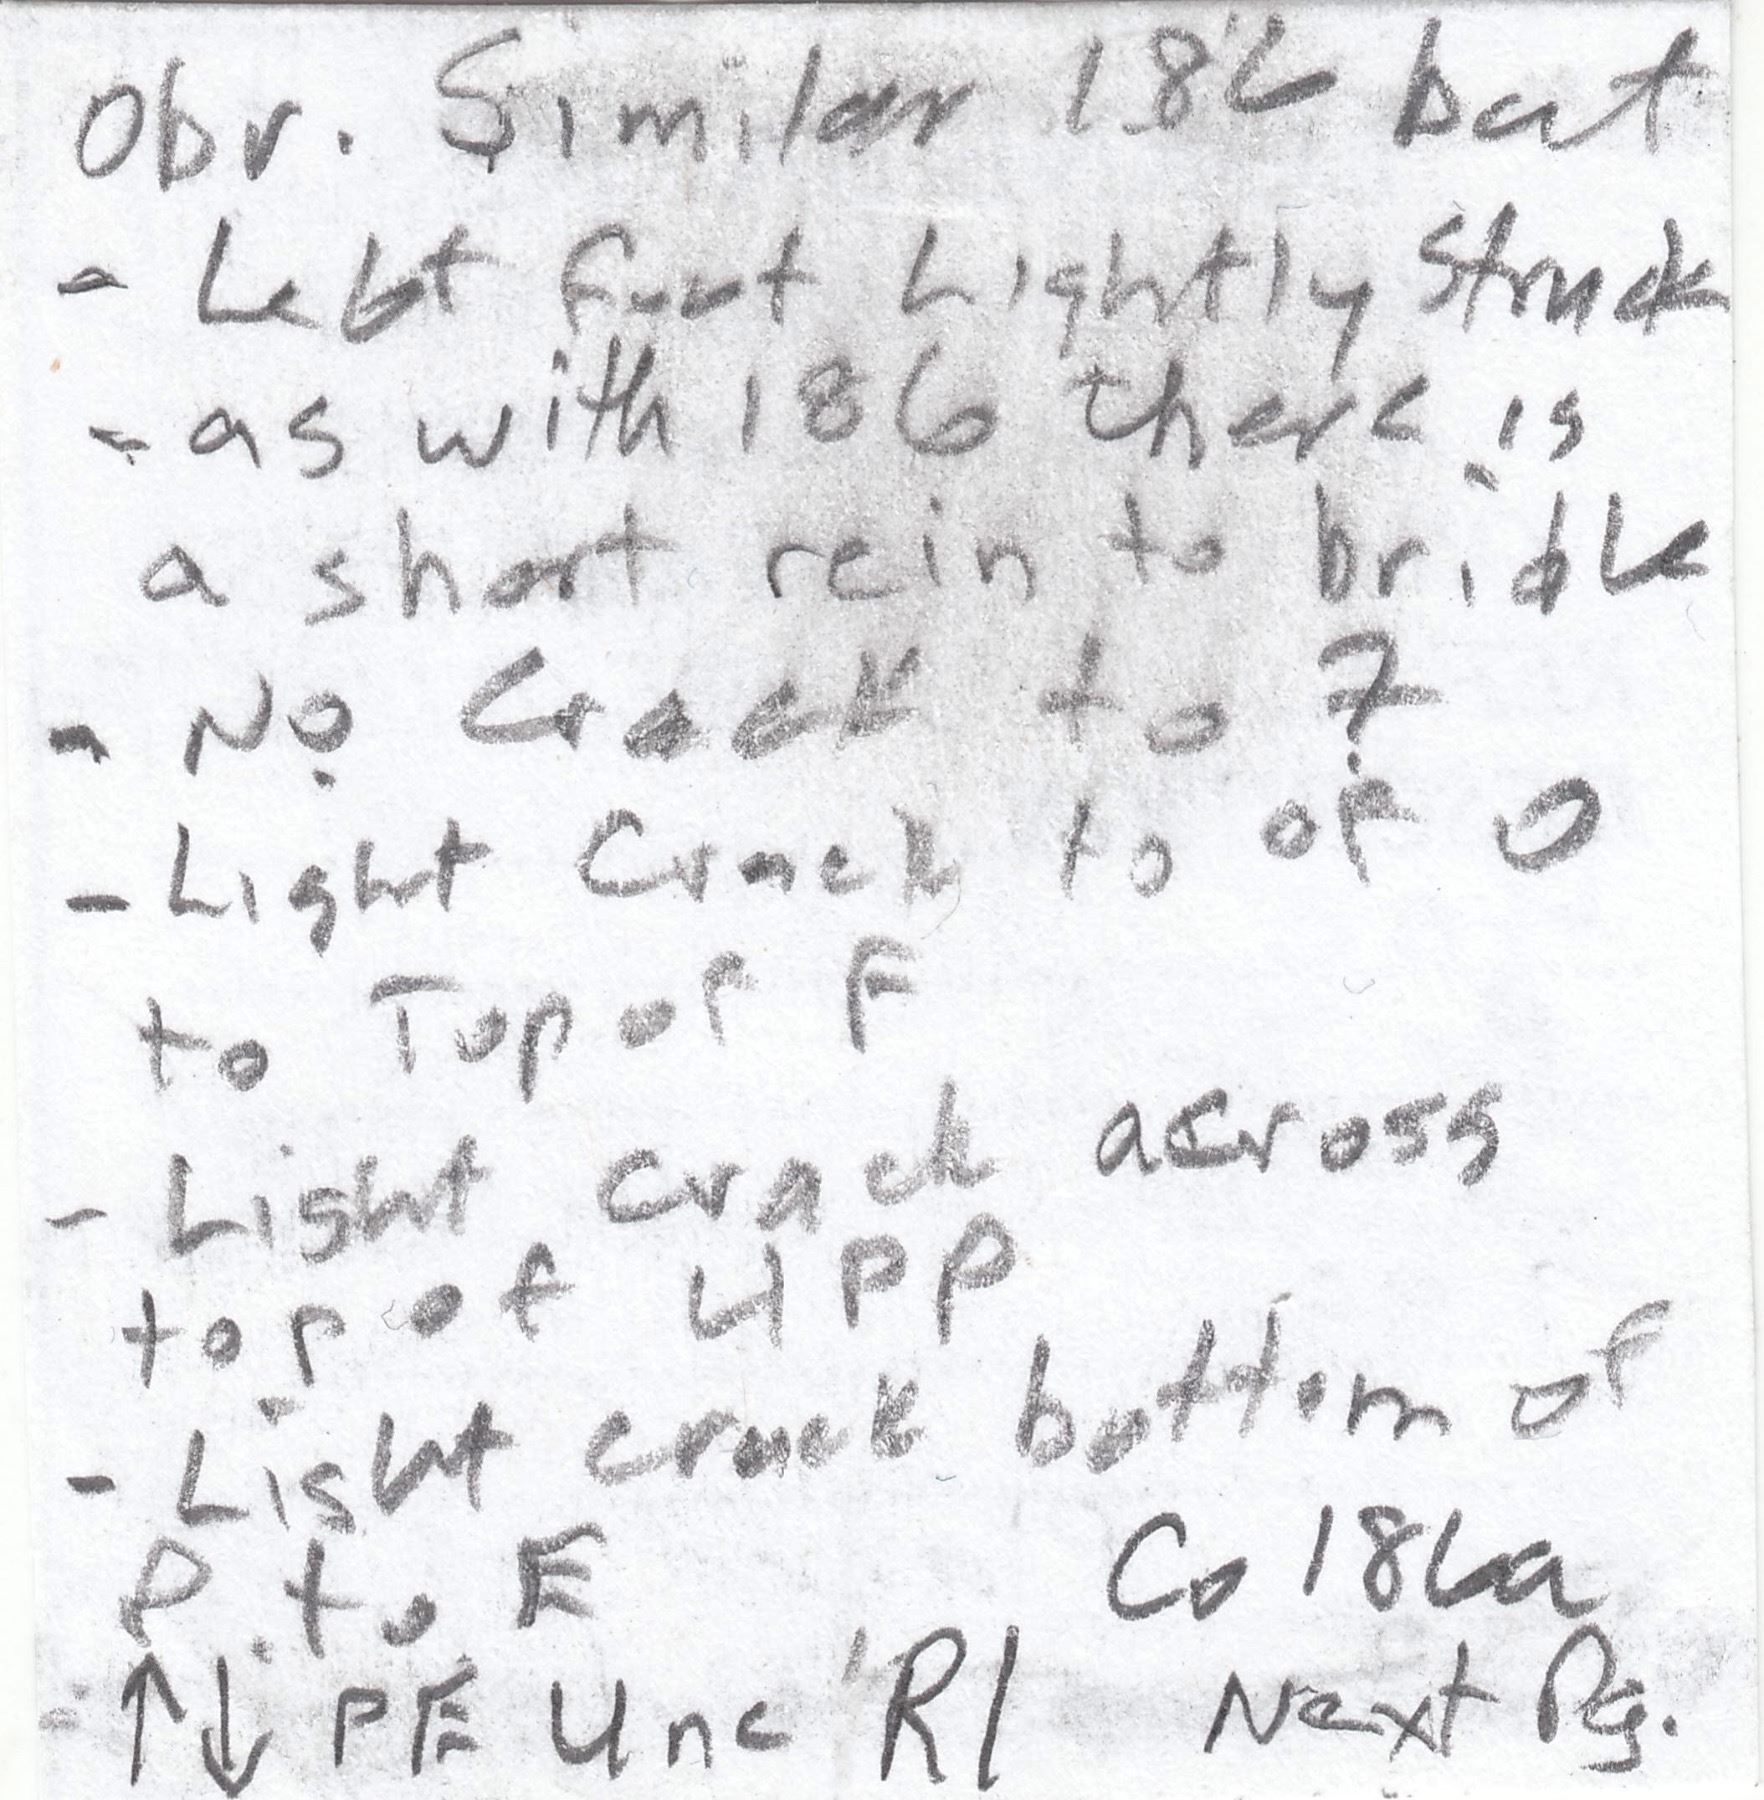 Obv. Similar 186 but
- Left foot Lightly Struck
- as with 186 there is
a short rein to bridle
- No Crack to 7
- Light Crack to of O
to Top of F
- Light crack across
top of UPP
- Light crack bottom of
P to E
Co 186a
- ↑↓ PE Unc R1 Next Pg.